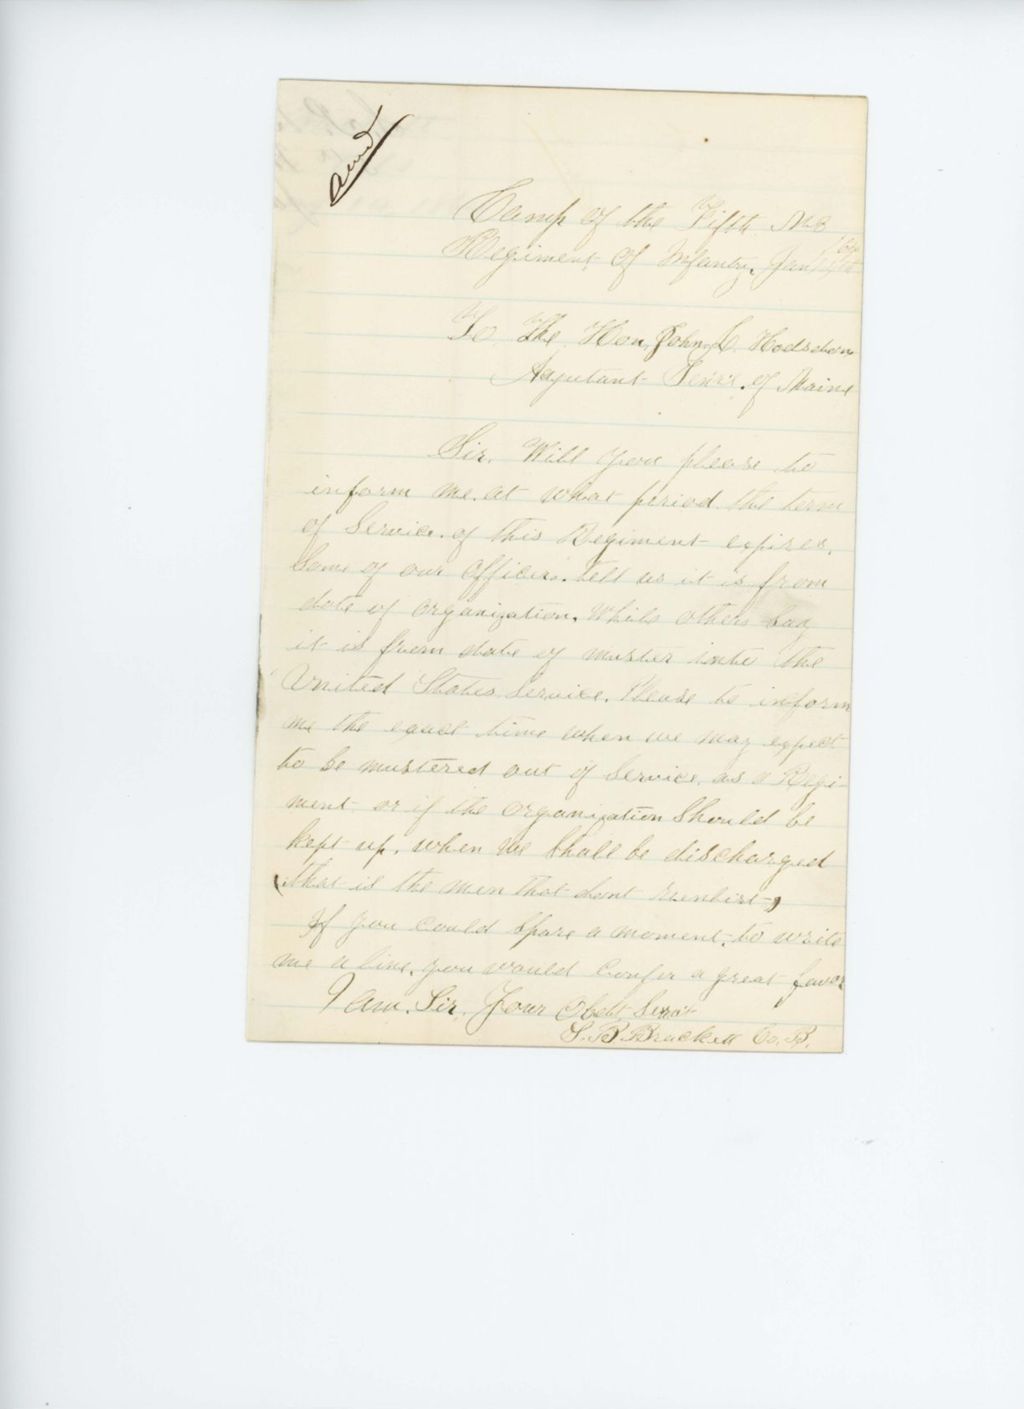 Ansd
Camp of the Fifth Me
Regiment of Infantry. Jan
To The Hon, John L. Hodsdon
Adjutant Gen'r. of Maine
Sir. Will you please to
inform me. at what period the term
of Service. of this Regiment expires.
Some of our officers. tell us it is from
date of organization. While others say
it is from date of muster into the
United States Service. Please to inform
me the exact time when we may expect
to be mustered out of Service. as a Regi-
ment or if the organization Should be
kept up. when we Shall be discharged
(that is the men that dont reenlist)
If you could Spare a moment. to write
me a line. you would Confer a great favor
I am. Sir. Your Obdt Servt
S. B. Brackett Co. B.